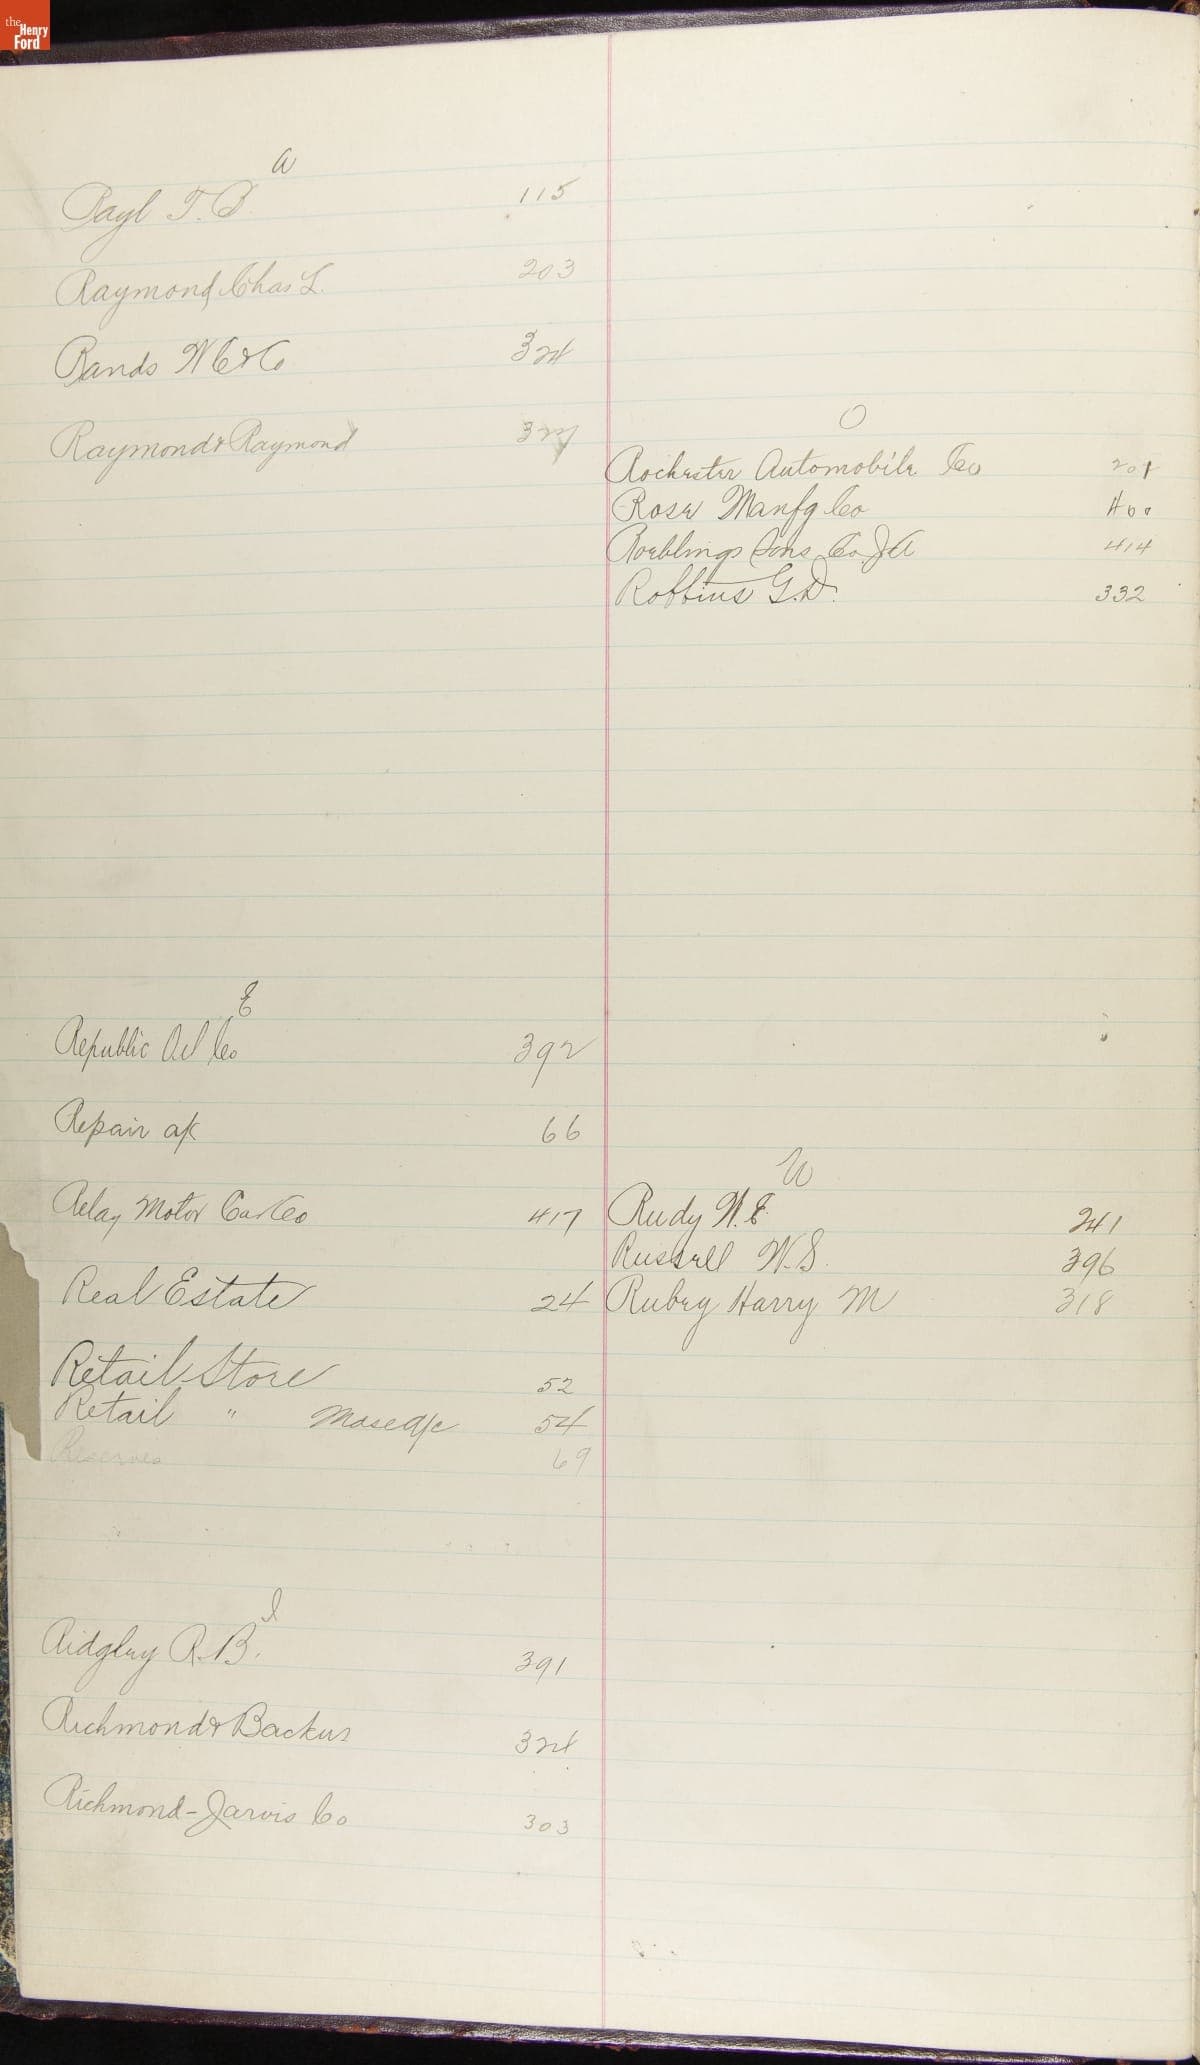 the Henry Ford
a
Rayl T. B. 115
Raymond, Chas L. 203
Rands W C & Co 324
Raymond & Raymond
E
Republic Oil Co 392
Repair a/c 66
Relay Motor Car Co 417
Real Estate 24
Retail Store 52
Retail " Mdse a/c 54
Reserves 69
I
Ridgley R. B. 391
Richmond & Backus 324
Richmond-Jarvis Co 303
O
Rochester Automobile Co 201
Rose Manfg Co 400
Roeblings Sons Co J A 414
Robbins G. D. 332
U
Rudy W. E. 241
Russell W. S. 396
Rubey Harry M 318